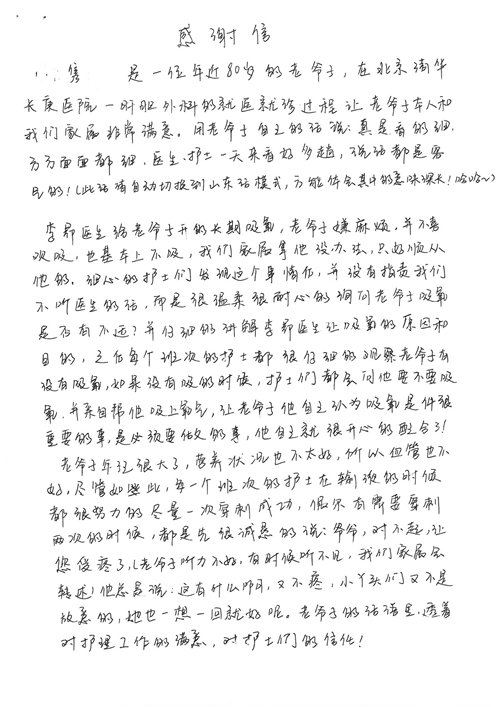 感谢信
隽 是一位年近80岁的老爷子,在北京清华
长庚医院一肝胆外科的就医就诊过程让老爷子本人和
我们家属非常满意。用老爷子自己的话说:真是看的细.
方方面面都细.医生.护士一天来看好多趟,说话都是客
气的!(此话请自动切换到山东话模式,方能体会其中的意味深长!哈哈~)
李 医生给老爷子开的长期吸氧,老爷子嫌麻烦,并不喜
欢吸,也基本上不吸,我们家属拿他没办法,只好顺从
他的。细心的护士们发现这个事情后,并没有指责我们
不听医生的话,而是很温柔很耐心的询问老爷子吸氧
是否有不适?并仔细的讲解李 医生让吸氧的原因和
目的,之后每个班次的护士都很仔细的观察老爷子有
没有吸氧,如果没有吸的时候,护士们都会问他要不要吸
氧.并亲自帮他吸上氧气,让老爷子他自己认为吸氧是件很
重要的事,是必须要做的事,他自己就很开心的配合了!
老爷子年纪很大了,营养状况也不太好,所以血管也不
好,尽管如此,每一个班次的护士在输液的时候
都很努力的尽量一次穿刺成功,偶尔有需要穿刺
两次的时候,都是先很诚恳的说:爷爷,对不起,让
您受疼了,(老爷子听力不好,有时候听不见,我们家属会
转述)他总是说:这有什么的,又不疼,小丫头们又不是
故意的,她也想一回就好呢。老爷子的话语里,透着
对护理工作的满意,对护士们的信任!